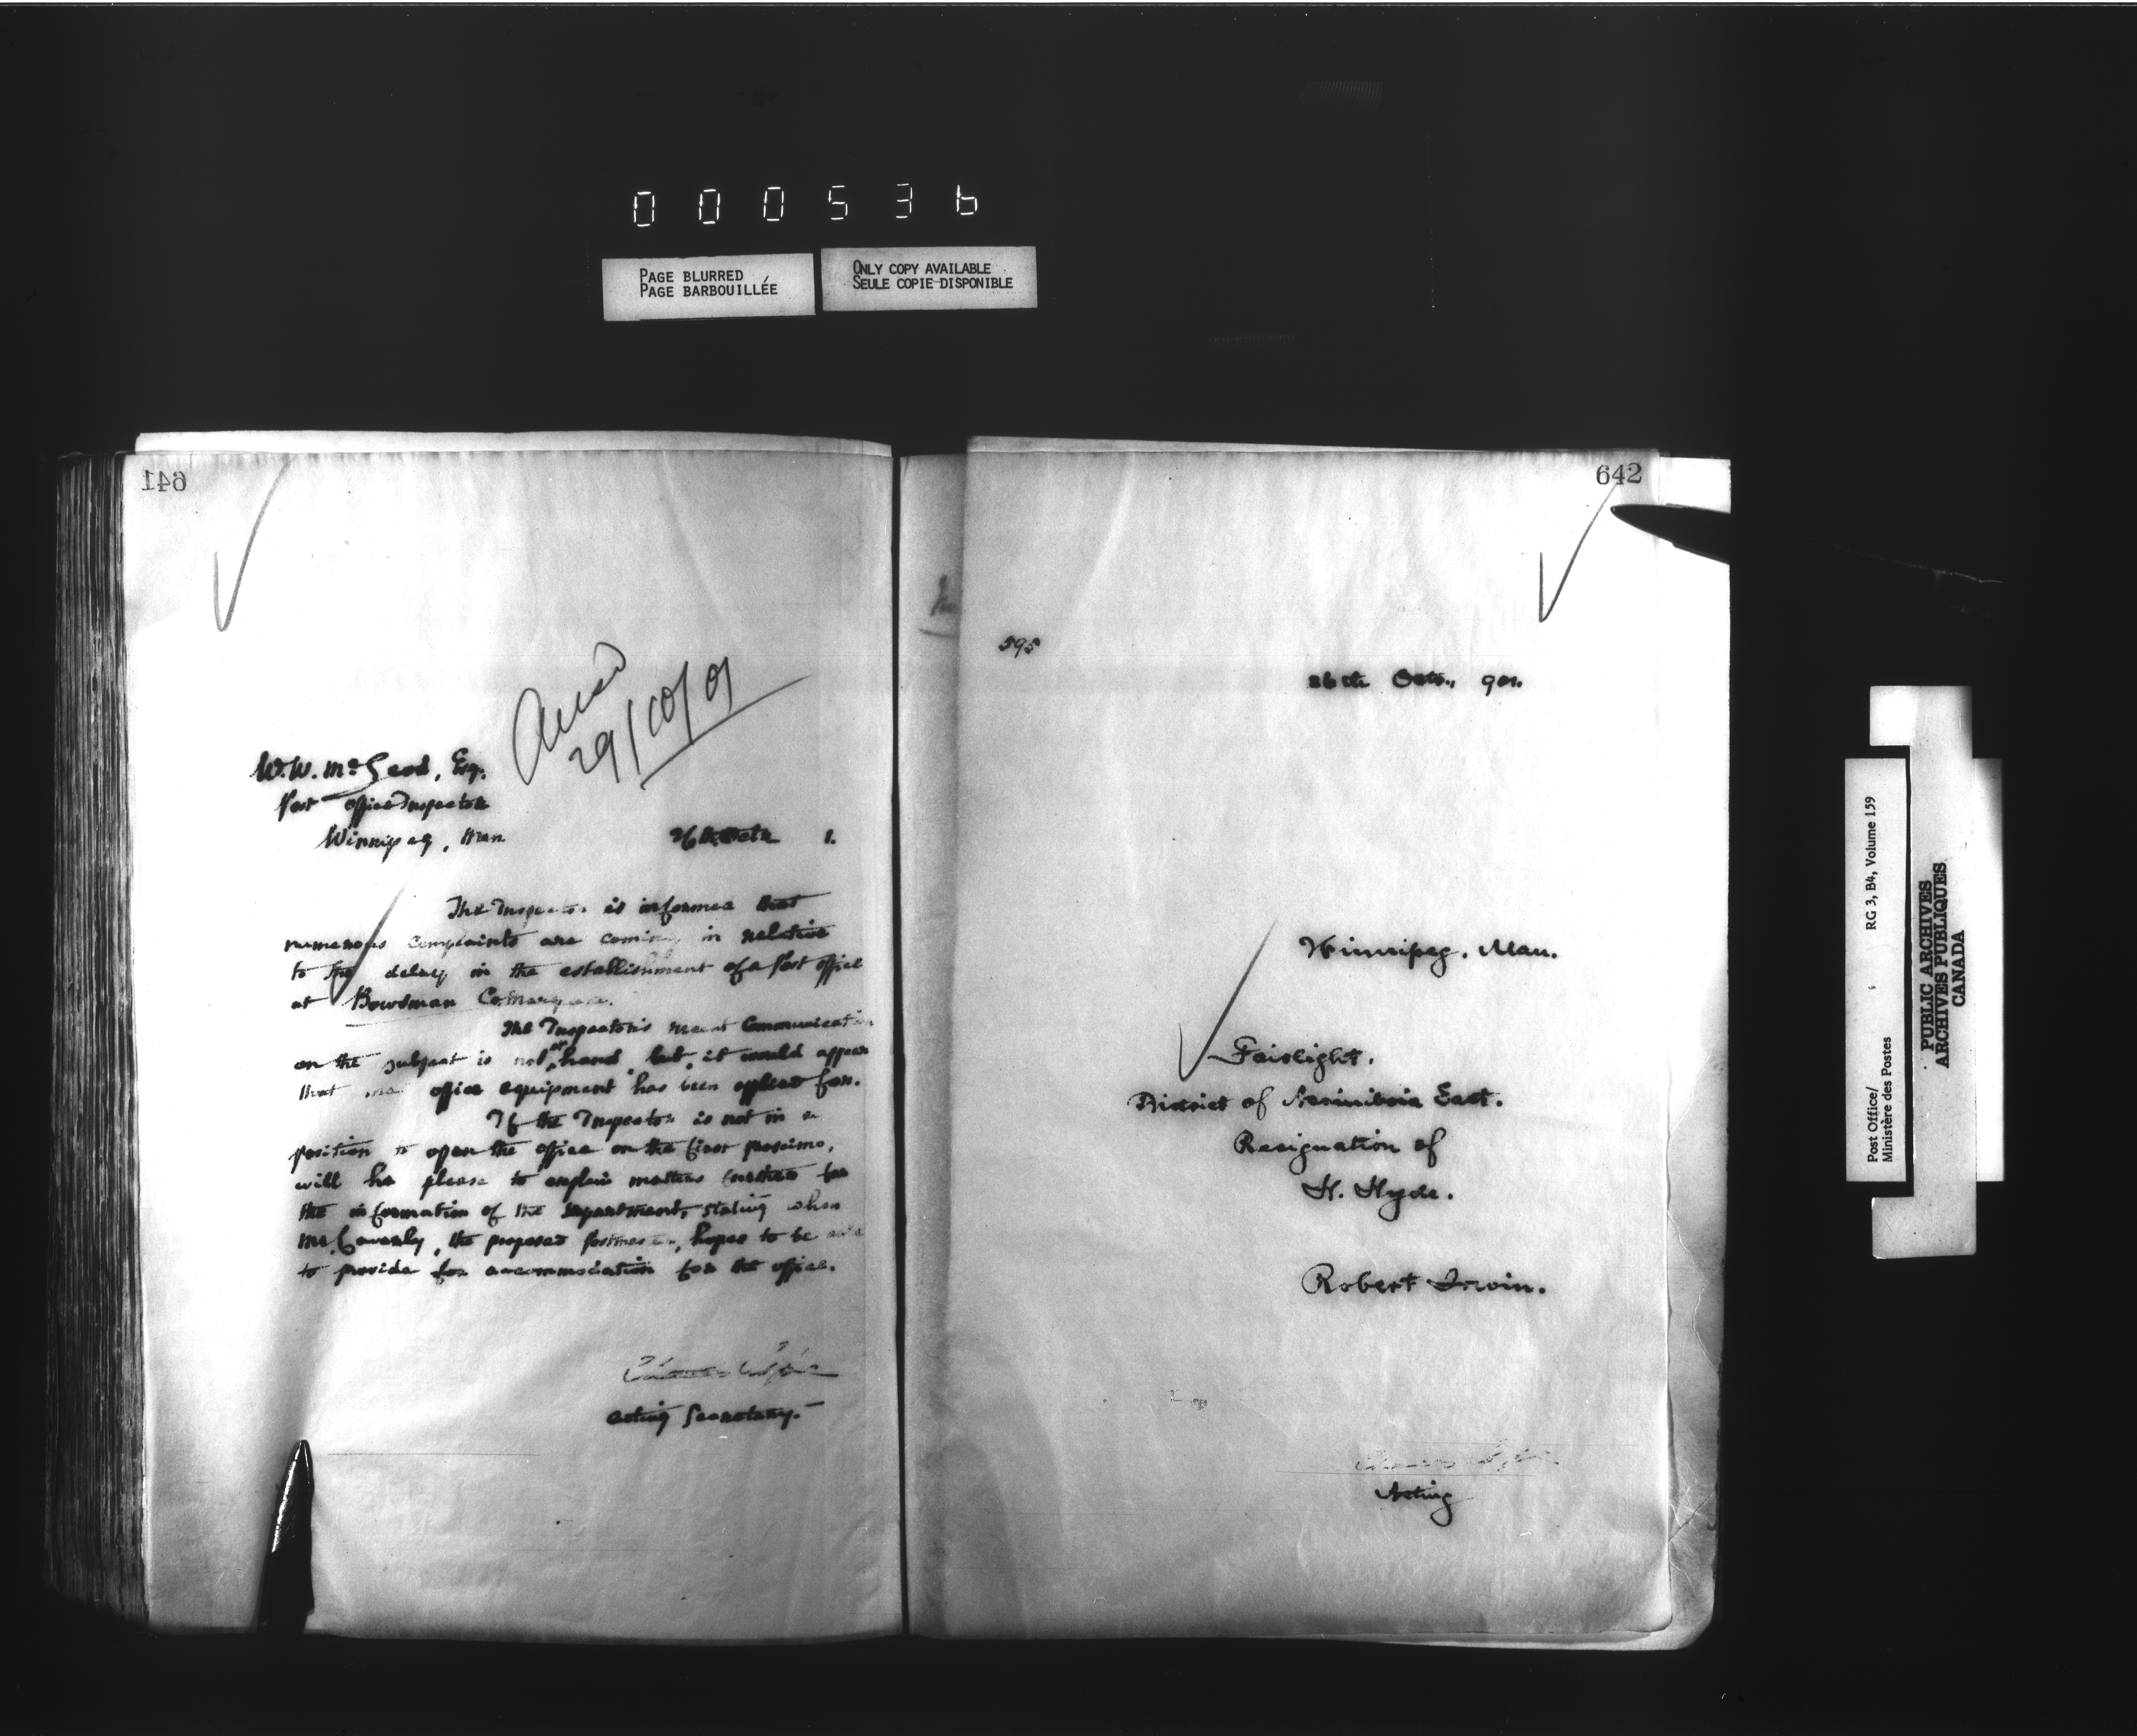 000536
PAGE BLURRED
PAGE BARBOUILLÉE
ONLY COPY AVAILABLE
SEULE COPIE DISPONIBLE
641
29/10/01
W.W. McLeod, Esq.
Post Office Inspector
Winnipeg, Man
26th Octr 1.
The Inspector is informed that
numerous complaints are coming in relative
to the delay in the establishment of a Post Office
at Bowsman
The Inspector's recent Communication
on the subject is not at hand but, it would appear
that office equipment has been applied for.
If the Inspector is not in a
position to open the office on the first proximo,
will he please to explain matters further for
the information of the Department, stating when
Mr. the proposed Postmaster, hopes to be able
to provide for accommodation for the office.
Acting Secretary.
642
595
26th Octr., 901.
Winnipeg, Man.
Fairlight.
District of Assiniboia East.
Resignation of
H. Hyde.
Robert Irwin.
Acting
Post Office/
Ministère des Postes
RG 3, B4, Volume 159
PUBLIC ARCHIVES
ARCHIVES PUBLIQUES
CANADA